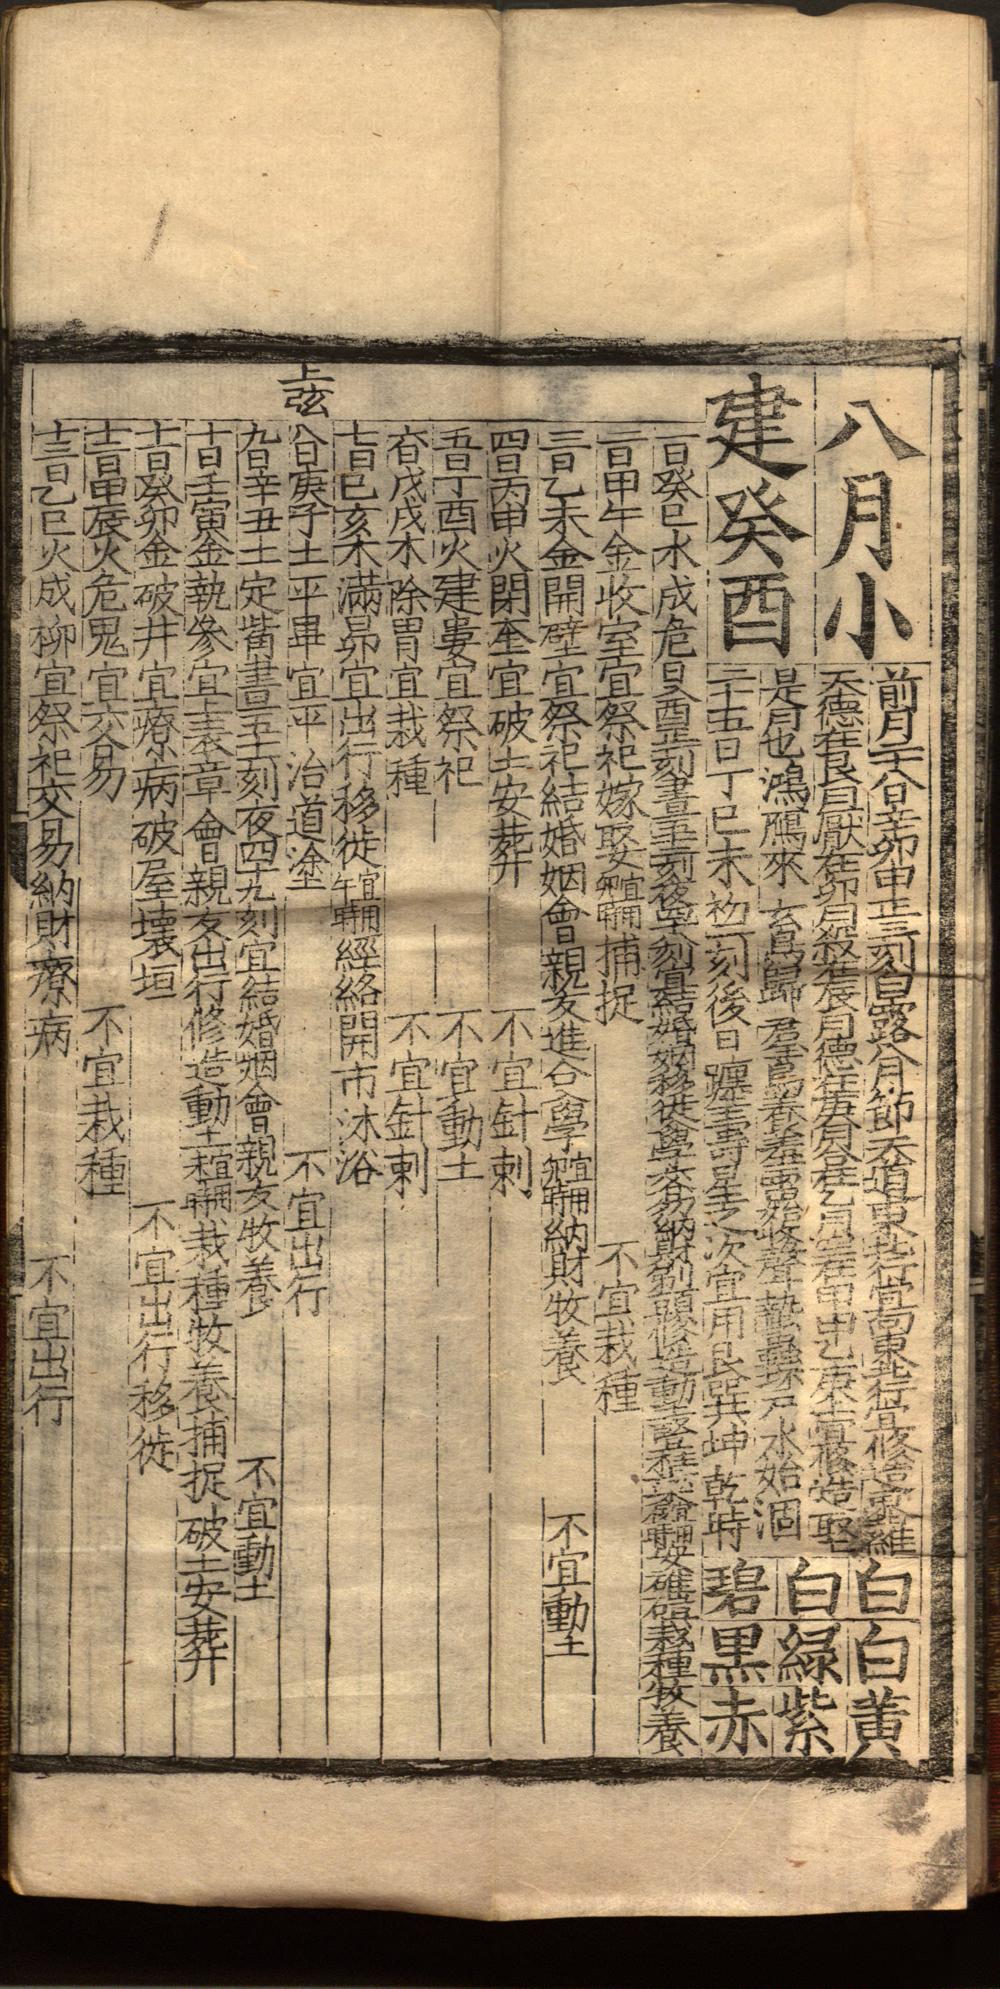 八月小
建癸酉
前月二十八日辛卯申正三刻白露八月節天道東北行宜向東北行宜修造東北維
天德在艮月厭在卯月殺在辰月德在庚月合在乙月空在甲宜修造取土
是月也鴻鴈來玄鳥歸羣鳥養羞雷始收聲蟄蟲坏戶水始涸
二十五日丁巳未初一刻後日躔壽星之次宜用艮巽坤乾時
白白黃
白綠紫
碧黑赤
一日癸巳水成危日入酉正一刻晝五十三刻夜四十七刻宜結婚姻移徙入學交易納財剃頭修造動土豎柱上梁宜用辰時安碓磑栽種牧養
二日甲午金收室宜祭祀嫁娶宜用卯時捕捉 不宜栽種
三日乙未金開壁宜祭祀結婚姻會親友進人入學宜用卯時納財牧養 不宜動土
四日丙申火閉奎宜破土安葬 不宜針刺
五日丁酉火建婁宜祭祀 不宜動土
六日戊戌木除胃宜栽種 不宜針刺
七日己亥木滿昴宜出行移徙宜用午時經絡開市沐浴
上弦
八日庚子土平畢宜平治道塗 不宜出行
九日辛丑土定觜晝五十一刻夜四十九刻宜結婚姻會親友牧養 不宜動土
十日壬寅金執參宜上表章會親友出行修造動土宜用時栽種牧養捕捉破土安葬
十一日癸卯金破井宜療病破屋壞垣 不宜出行移徙
十二日甲辰火危鬼宜交易 不宜栽種
十三日乙巳火成柳宜祭祀交易納財療病 不宜出行